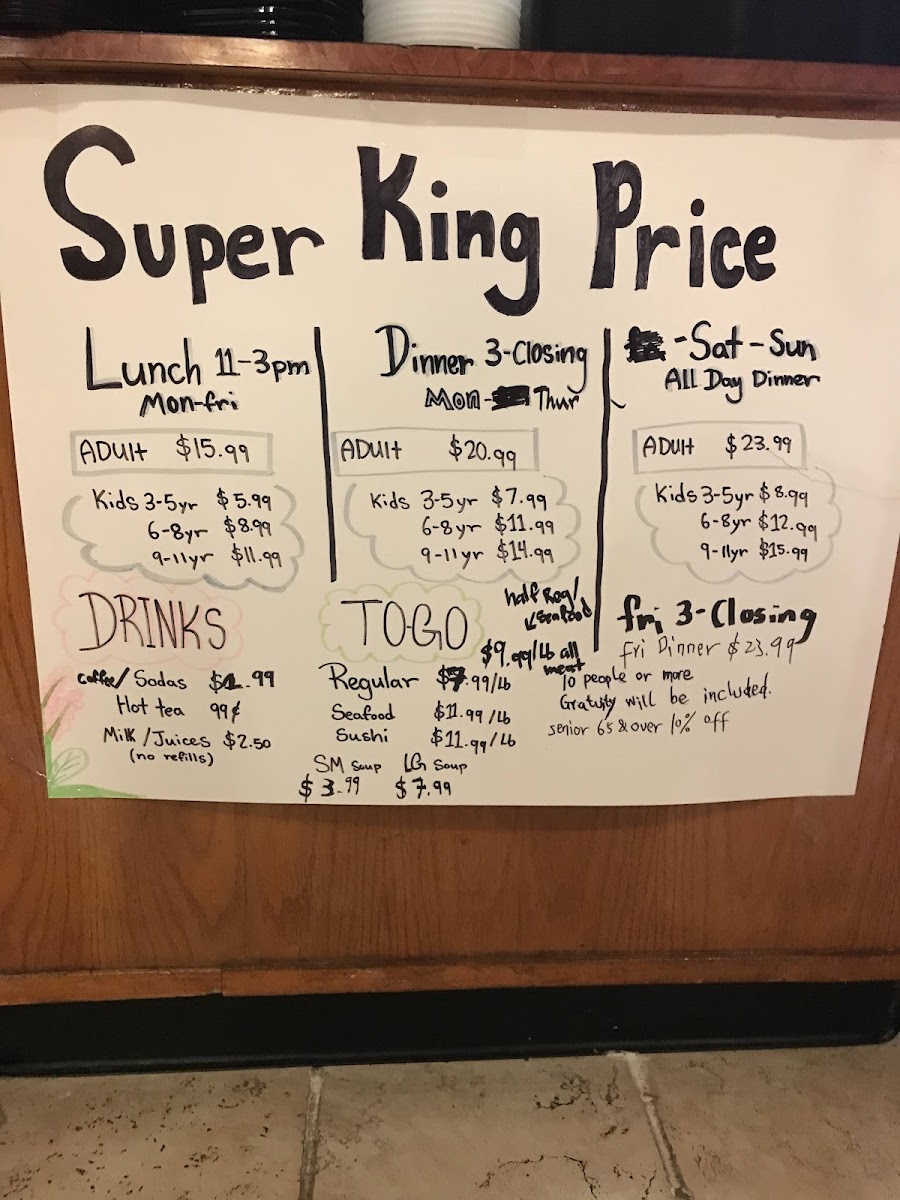 Super King Price
Lunch 11-3pm
Mon-fri
ADUlt $15.99
Kids 3-5yr $5.99
6-8yr $8.99
9-11yr $11.99
Dinner 3-Closing
Mon- Thur
ADUlt $20.99
Kids 3-5yr $7.99
6-8yr $11.99
9-11yr $14.99
-Sat-Sun
All Day Dinner
ADUlt $23.99
Kids 3-5yr $8.99
6-8yr $12.99
9-11yr $15.99
fri 3-Closing
fri Dinner $23.99
10 people or more
Gratuity will be included.
senior 65 & over 10% off
DRINKS
coffee/ Sodas $1.99
Hot tea 99¢
Milk/Juices $2.50
(no refills)
TOGO
half Reg/
Seafood
$9.99/lb all
meat
Regular $7.99/lb
Seafood $11.99/lb
Sushi $11.99/lb
SM Soup LG Soup
$3.99 $7.99